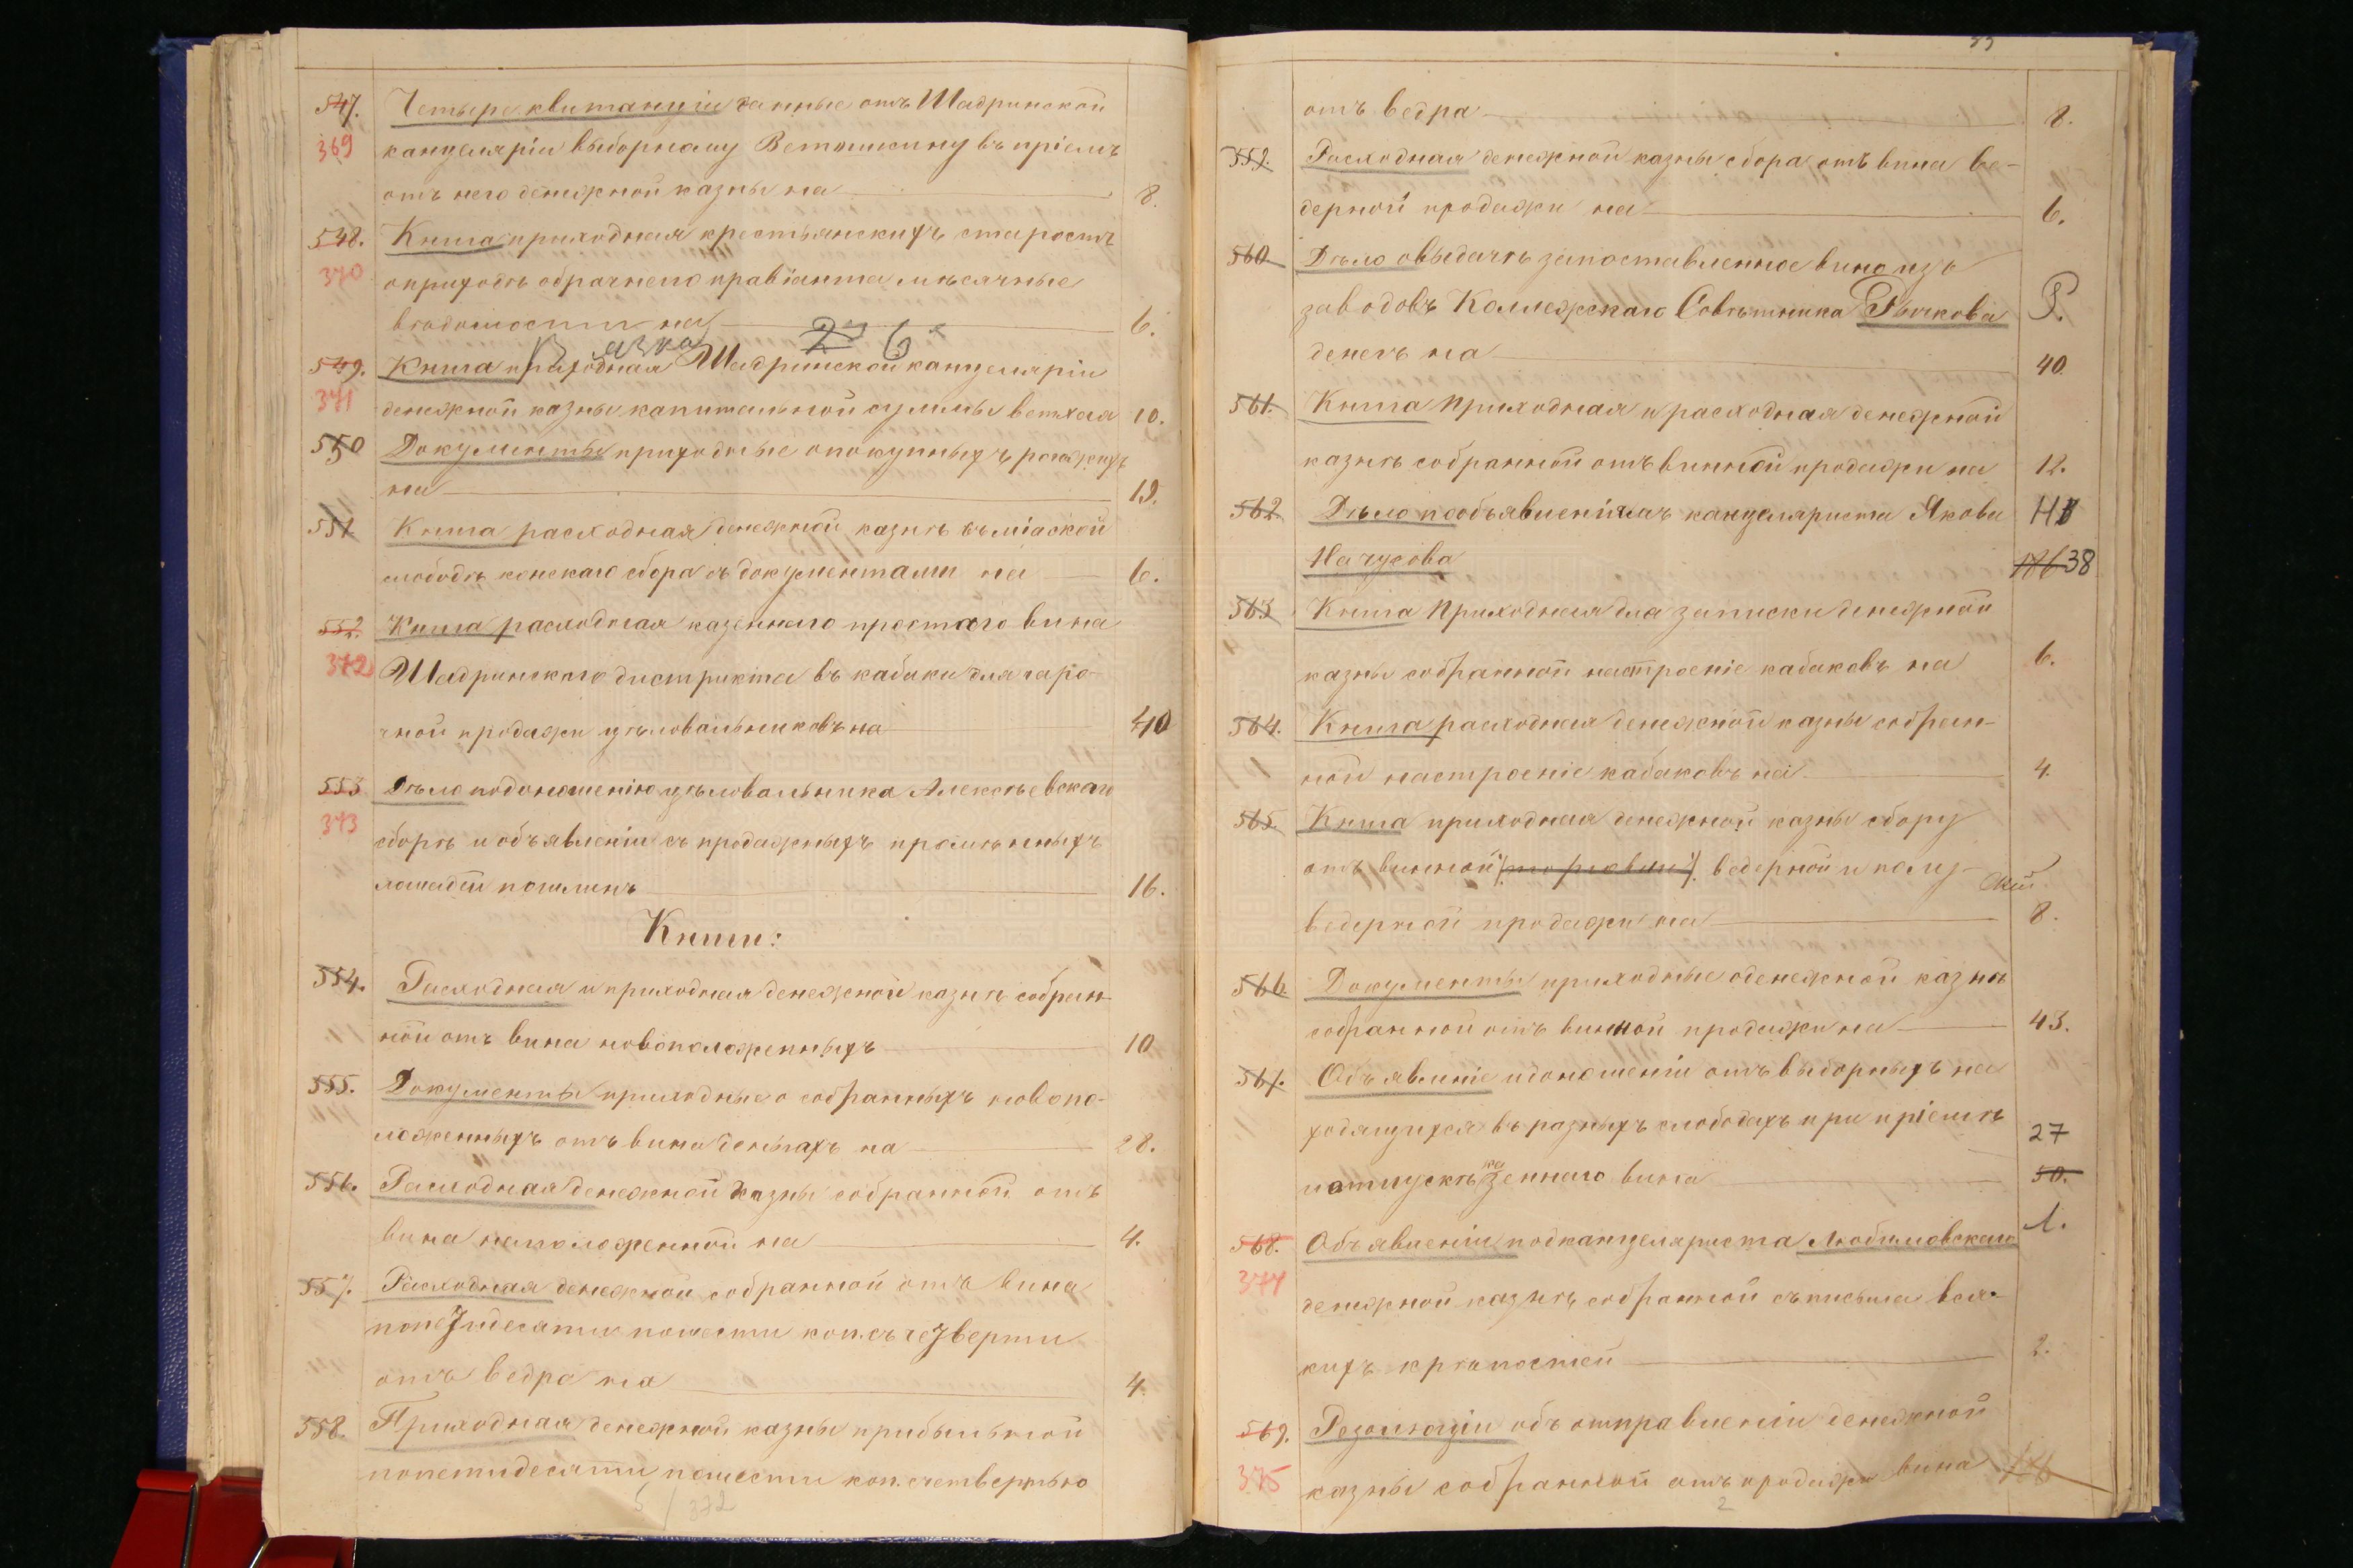 547. Четыре квитанціи данные отъ Шадринской
369 канцеляріи выборному Ветошкину въ пріемѣ
отъ него денежной казны на 8.
548. Книга приходная крестьянскихъ старостъ
370 о приходѣ оброчнего правіанта мѣсячные
вѣдомости на 6.
Вязка 2я 6
549. Книга приходная Шадринской канцеляріи
371 денежной казны капитальной суммы ветхая 10.
550 Документы приходные о покупныхъ
на 19.
551. Книга расходная денежной казнѣ въ міаской
слободѣ конскаго сбора съ документами на 6.
552. Книга расходная казеннаго простаго вина
372 Шадринского дистрикта въ кабаки для чаро-
чной продажи цѣловальниковъ на 40
553 Дѣло по доношенію цѣловальника Алексѣевскаго
373 сборѣ и объявленіи съ продажныхъ промѣнныхъ
лошадей пошлинъ 16.
Книги:
554. Расходная и приходная денежной казнѣ собран-
ной отъ вина новоположенныхъ 10
555. Документы приходные о собранныхъ новопо-
ложенныхъ отъ вина деньгахъ на 28.
556. Расходная денежной казны собранной отъ
вина неположенной на 4.
557. Расходная денежной собранной отъ вина
по петидесяти по шести коп. съ четверти
отъ ведра на 4.
558. Приходная денежной казны прибыльной
по петидесяти по шести коп. с четвертью
5/372
отъ ведра 8.
559. Расходная денежной казны сбора отъ вина ве-
дерной продажи на 6.
560 Дѣло о выдачѣ за поставленное вино изъ
заводовъ Коллежскаго Совѣтника Рычкова Р.
денегъ на 40
561. Книга приходная и расходная денежной
казнѣ собранной отъ винной продажи на 12.
562 Дѣло по объявленіямъ канцеляриста Якова
Начусова 38
563 Книга приходная для записки денежной
казны собранной на строеніе кабаковъ на 6.
564. Книга расходная денежной казны собран-
ной на строеніе кабаковъ на 4.
565. Книга приходная денежной казны сбору
отъ винной (торговли) ведерной и полу-
ведерной продажи на 8.
566 Документы приходные о денежной казнѣ
собранной отъ винной продажи на 43.
567. Объявленіе и доношеніи отъ выборныхъ на
ходящихся въ разныхъ слободахъ при пріемѣ 27
и отпускѣ казеннаго вина 50.
568. Объявленіи подканцеляриста Любимовскаго 1.
374 денежной казнѣ собранной съ письма вся-
кихъ крѣпостей 2.
569. Резолюціи объ отправленіи денежной
375 казны собранной отъ продажи вина
2